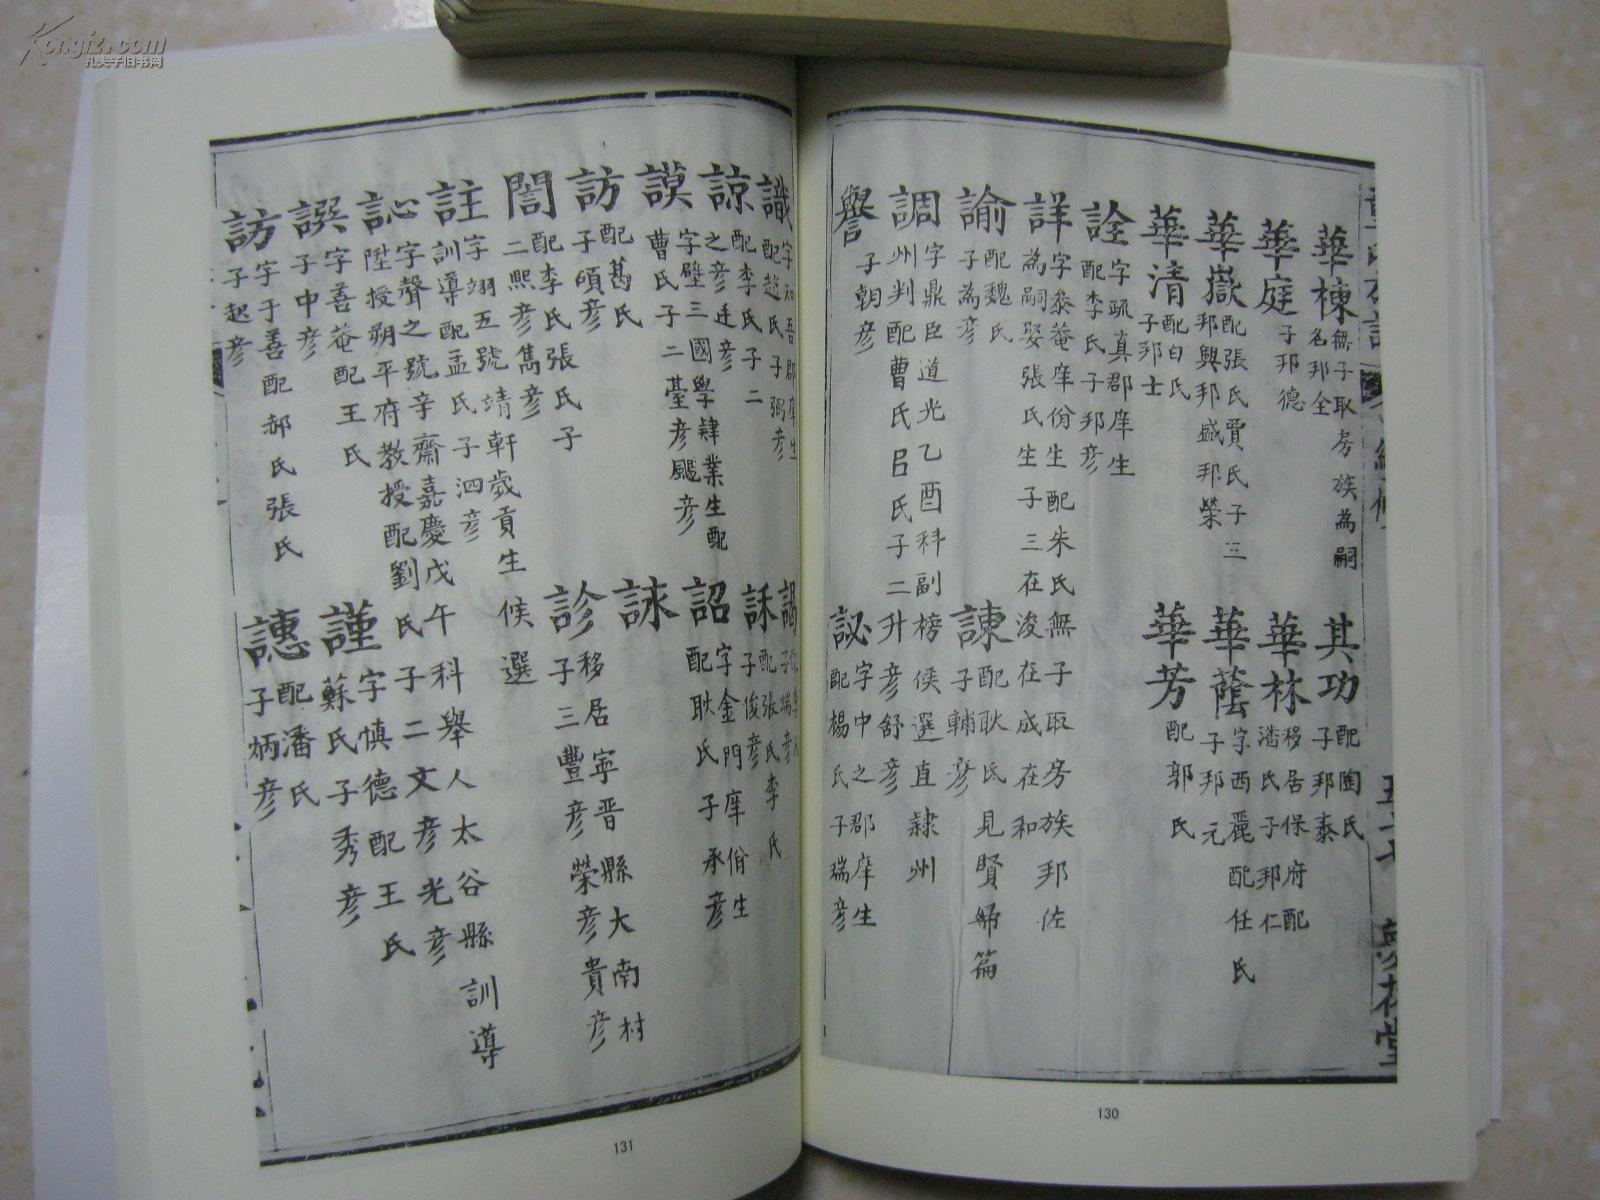 Kongfz.com
孔夫子旧书网
華棟
無子取房族為嗣
名邦全
其功
配陶氏
子邦泰
華庭
子邦德
華林
移居保府配
潘氏子邦仁
華嶽
配張氏賈氏子三
邦興邦盛邦榮
華蔭
字西麗配任氏
子邦元
華清
配白氏
子邦士
華芳
配郭氏
詮
字疏真郡庠生
配李氏子邦彦
詳
字黍菴庠份生配朱氏無子取房族邦佐
為嗣娶張氏生子三在浚在成在和
諭
配魏氏
子為彦
諫
配耿氏見賢婦篇
子輔彦
調
字鼎臣道光乙酉科副榜候選直隷州
州判配曹氏呂氏子二升彦舒彦
譽
子朝彦
訫
字中之郡庠生
配楊氏子瑞彦
130
識
字知吾郡庠生
配趙氏子弼彦
諒
配李氏子二
之彦廷彦
訸
配張氏李氏
子俊彦
謨
字壁三國學肄業生配
曹氏子二臺彦颺彦
詔
字金門庠份生
配耿氏子承彦
訪
配葛氏
子碩彦
詠
誾
配李氏張氏子
二熙彦雋彦
診
移居寧晋縣大南村
子三豐彦榮彦貴彦
註
字翊五號靖軒歲貢生候選
訓導配孟氏子泗彦
訫
字聲之號辛齋嘉慶戊午科舉人太谷縣訓導
陞授朔平府教授配劉氏子二文彦光彦
譔
字善菴配王氏
子中彦
謹
字慎德配王氏
蘇氏子秀彦
訪
字于善配郝氏張氏
子起彦
譓
配潘氏
子炳彦
131